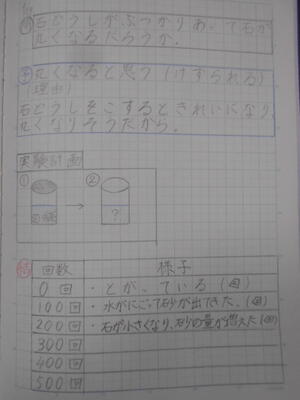 石どうしがぶつかりあって石が
丸くなるだろうか。
予 丸くなると思う(けずられる)
理由)
石どうしをこするときれいになり、
丸くなりそうだから。
実験計画
① → ②
?
結 回数 様子
0回 ・とがっている(図)
100回 ・水がにごって砂が出てきた。(図)
200回 ・石が小さくなり、砂の量が増えた(図)
300回
400回
500回